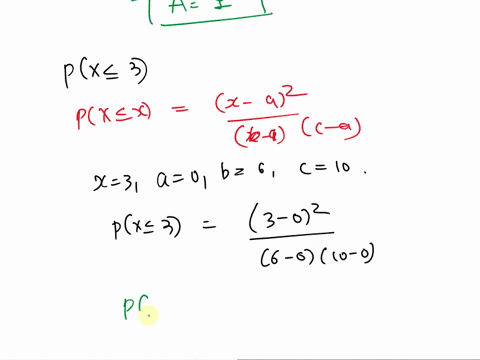 A = I
P(x ≤ 3)
P(X ≤ x) = (x - a)² / (b-a) (c-a)
x=3, a=0, b= 6, c=10 .
P(x ≤ 3) = (3-0)² / (6-0)(10-0)
P(